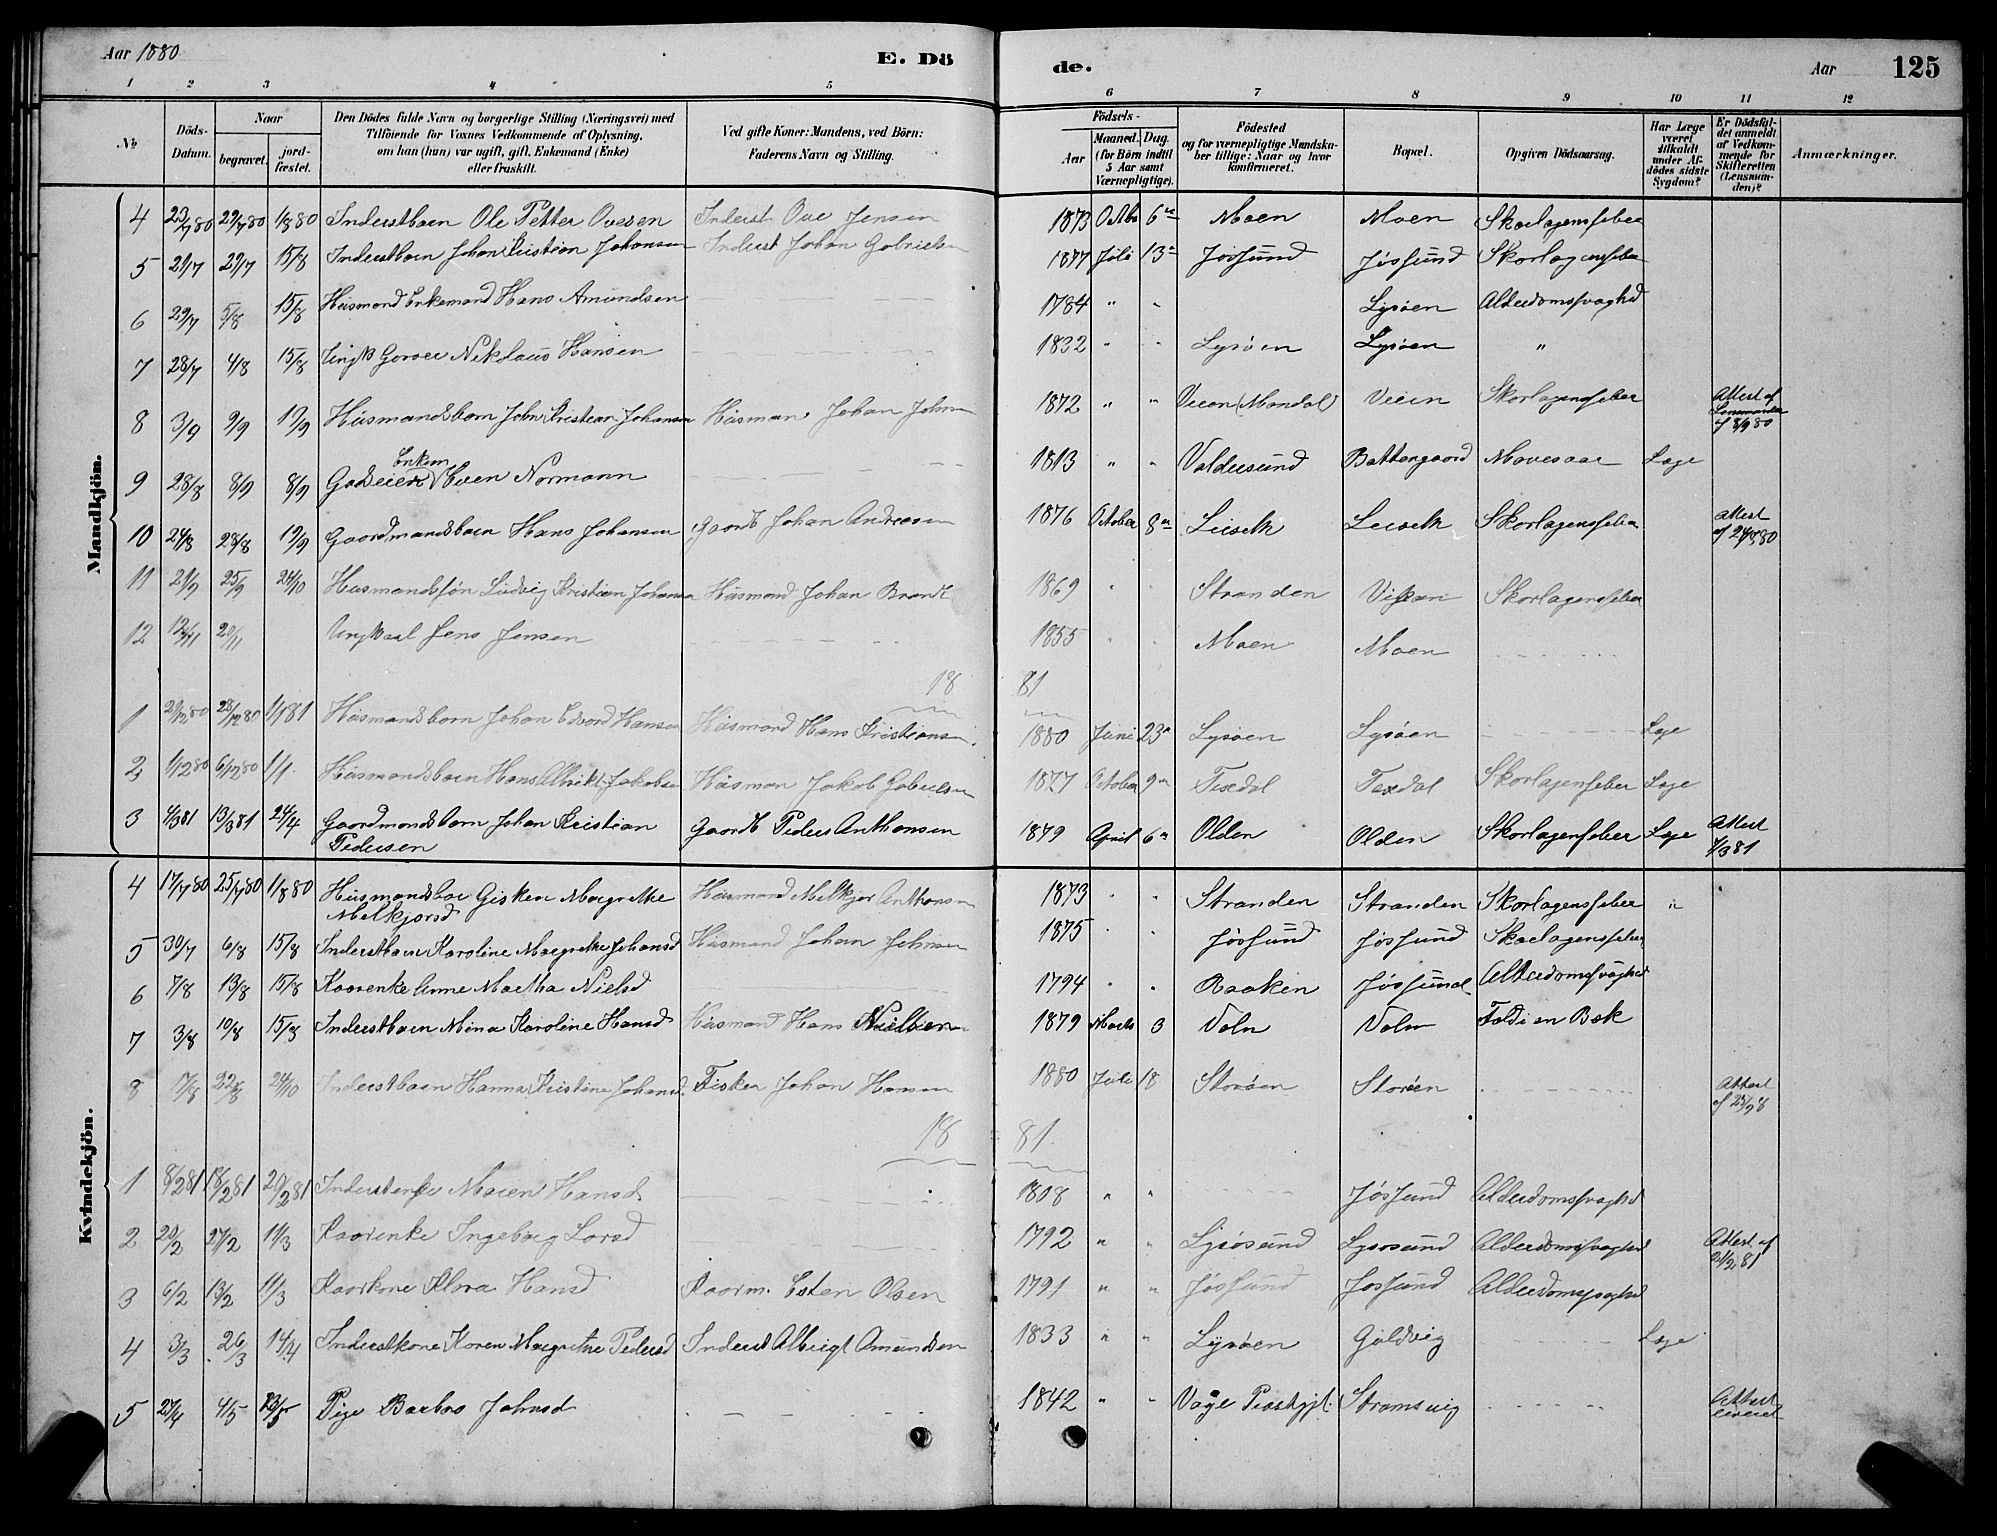 Aar 1880 E. Dö de. Aar 125
1 2 3 4 5 6 7 8 9 10 11 12
No Döds-Datum. Naar begravet. jord-fæstet. Den Dödes fulde Navn og borgerlige Stilling (Næringsvei) med Tilföiende for Voxnes Vedkommende af Oplysning, om han (hun) var ugift, gift, Enkemand (Enke) eller fraskilt. Ved gifte Koner: Mandens, ved Börn: Faderens Navn og Stilling. Födsels- Aar Maaned. Dag. (for Börn indtil 5 Aar samt Værnepligtige). Födested og for værnepligtige Mandskaber tillige: Naar og hvor konfirmeret. Bopæl. Opgiven Dödsaarsag. Har Læge været tilkaldt under Afdödes sidste Sygdom? Er Dödsfaldet anmeldt af Vedkommende for Skifteretten (Lensmanden)? Anmærkninger.
Mandkjön.
4 23/7 80 29/7 80 1/8 80 Inderstbarn Ole Petter Ovesen Inderst Ove Jensen 1873 Octbr 6te Moen Moen Skarlagensfeber
5 21/7 29/7 15/8 Inderstbarn Johan Kristian Johansen Inderst Johan Gabrielsen 1877 Juli 13 Jøssund Jøssund Skarlagensfeber
6 29/7 5/8 15/8 Husmand Enkemand Hans Amundsen 1784 " " Lysøen Alderdomssvaghed
7 28/7 4/8 15/8 Ungk Niklaus Hansen 1832 " " Lysøen Lysøen "
8 3/9 9/9 19/9 Husmandsbarn John Kristian Johansen Husman Johan Johnsen 1872 " " Veien (Mandal) Veien Skarlagensfeber Attest af Lensmanden af 8/9 80
9 28/8 8/9 8/9 Gaardeier Enkem Iver Normann 1813 " " Valdersund Battengaard Mavesaar Læge
10 24/8 28/8 19/9 Gaardmandsbarn Hans Johansen Gaardb Johan Andreasen 1876 October 8 Leiseth Leiseth Skarlagensfeber Attest af 24/8 80
11 21/9 25/9 24/10 Husmandssøn Ludvig Kristian Johansen Husmand Johan Brandt 1869 " " Stranden Skarlagensfeber
12 12/11 20/11 Ungkarl Jens Jensen 1855 " " Moen Moen
18 81
1 21/12 80 28/12 80 1/1 81 Husmandsbarn Johan Edvard Hansen Husmand Hans Kristiansen 1880 Juni 23 Lysøen Lysøen Læge
2 1/12 80 6/12 80 1/1 Husmandsbarn Hans Albrikt Jakobsen Husman Jakob Gabrielsen 1877 October 9 Texdal Texdal Skarlagensfeber Læge
3 4/3 81 13/3 81 24/4 Gaardmandsbarn Johan Kristian Pedersen Gaardb Peder Anthonsen 1879 April 6 Olden Olden Skarlagensfeber Læge Attest 1/3 81
Kvindekjön.
4 17/7 80 25/7 80 1/8 80 Husmandsbar Gisken Margrethe Melkjorsd Husmand Melkjor Anthonsen 1873 " " Stranden Stranden Skarlagensfeber "
5 30/7 6/8 15/8 Inderstbarn Karoline Margrethe Johansd Husmand Johan Johnsen 1875 " " Jøssund Jøssund Skarlagensfeber
6 7/8 13/8 15/8 Kaarenke Anne Martha Nielsd 1794 " " Raaken Jøssund Alderdomssvaghed
7 3/8 10/8 15/8 Inderstbarn Mina Karoline Hansd Husmand Hans 1879 Marts 3 Valn Valn Faldt i en Bæk
8 17/8 22/8 24/10 Inderstbarn Hanna Kristine Johansd. Fisker Johan Hansen 1880 Juli 18 Storøen Storøen Attest
18 81.
1 8/2 81 18/2 81 20/2 81 Inderstenke Maren Hansd 1808 " " Jøssund Alderdomssvaghed
2 20/2 27/2 11/3 Kaarenke Ingeborg Larsd 1792 " " Lysøsund Lysøsund Alderdomssvaghed Attest af 21/2 81
3 6/2 13/2 11/3 Kaarkone Klara Hansd Kaarm. Esten Olsen 1791 " " Jøssund Jøssund Alderdomssvaghed
4 3/3 26/3 14/4 Inderstkone Karen Margrethe Pedersd Inderst Albrigt Amundsen 1833 " " Lysøen Guldvig Læge
5 27/4 4/5 Pige Barbro Johnsd 1842 " " Strømsvig Attest leveret